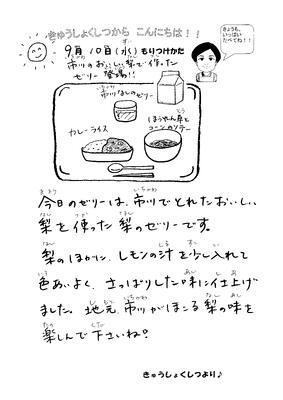 きゅうしょくしつから こんにちは！！
きょうも、
いっぱい
たべてね！！
9月10日(水)もりつけかた
市川のおいしい梨で作った
ゼリー登場!!
市川なしのゼリー
カレーライス
ほうれん草と
コーンのソテー
今日のゼリーは、市川でとれたおいしい
梨を使った梨のゼリーです。
梨のほかに、レモンの汁を少し入れて
色あいよく、さっぱりした味に仕上げ
ました。地元、市川がほこる梨の味を
楽しんで下さいね?
きゅうしょくしつより♪